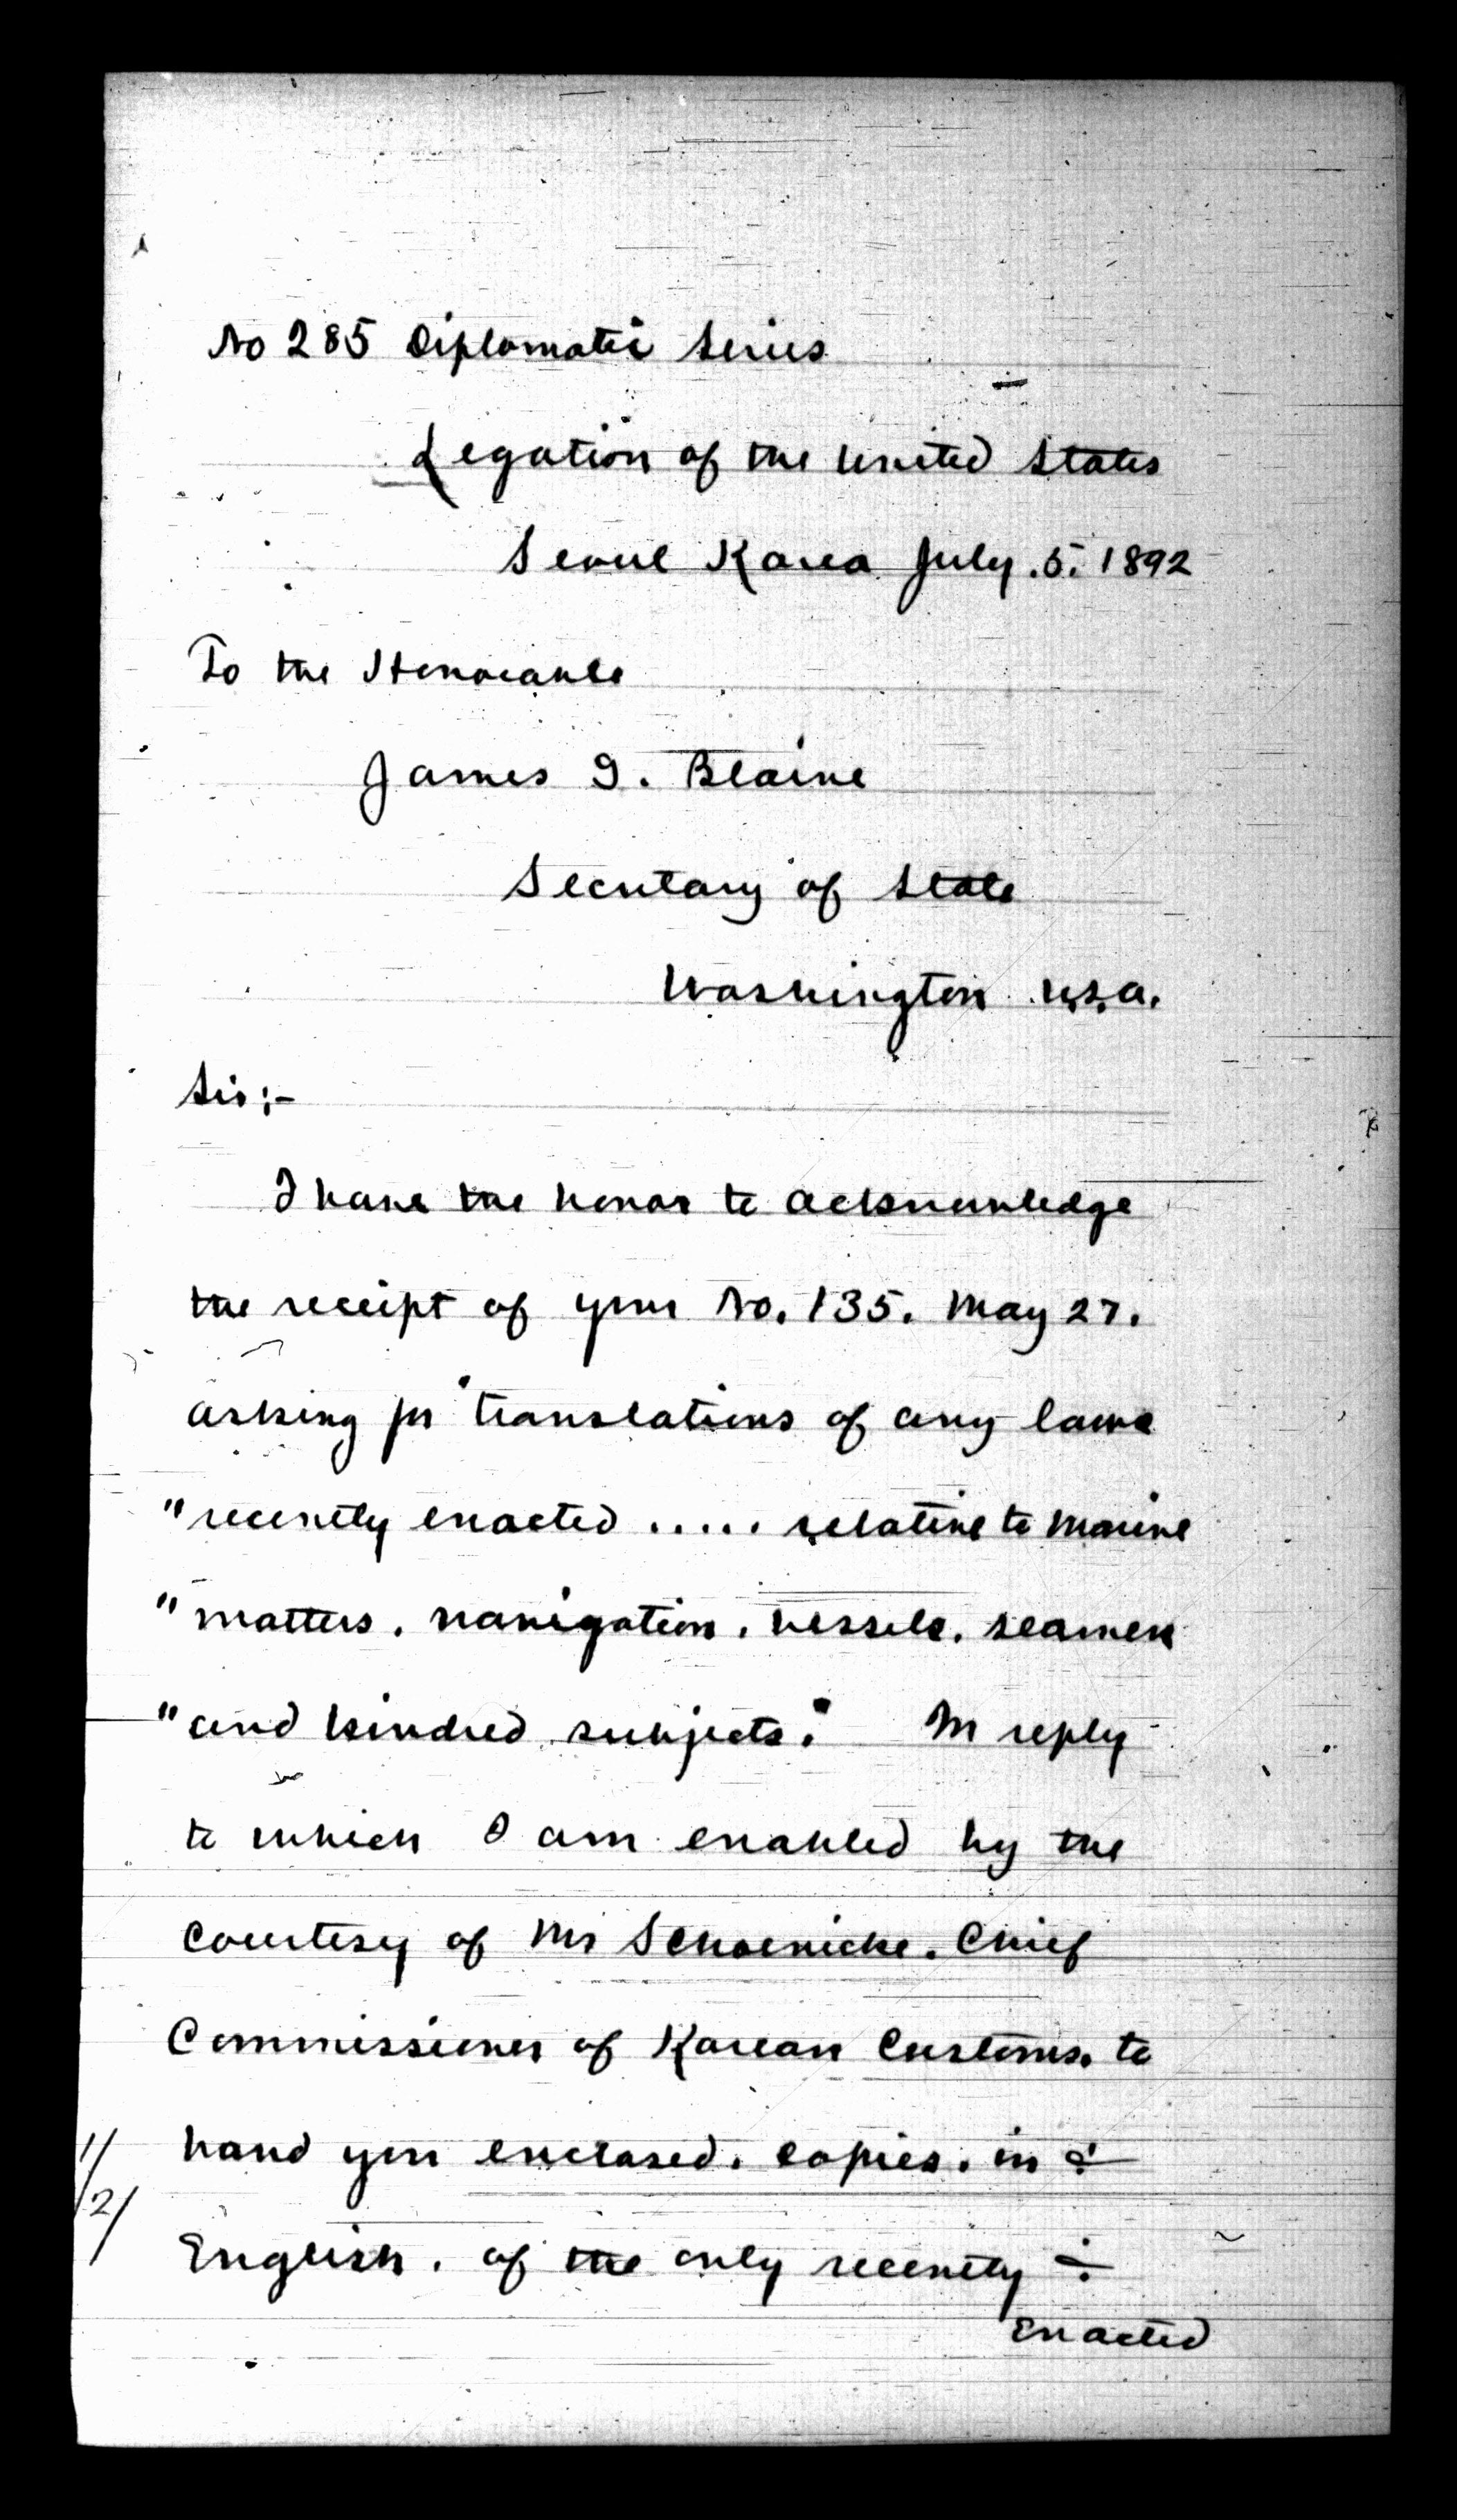 No 285 Diplomatic Series
Legation of the United States
Seoul Korea July. 5. 1892
To the Honorable
James G. Blaine
Secretary of State
Washington U.S.A.
Sir:-
I have the honor to acknowledge
the receipt of your No. 135. May 27.
asking for "translations of any laws
"recently enacted ..... relative to marine
"matters, navigation, vessels, seamen
"and kindred subjects." In reply
to which I am enabled by the
courtesy of Mr Schoenicke. Chief
Commissioner of Korean Customs. to
1/ hand you enclosed. copies. in
2/ English. of the only recently
Enacted